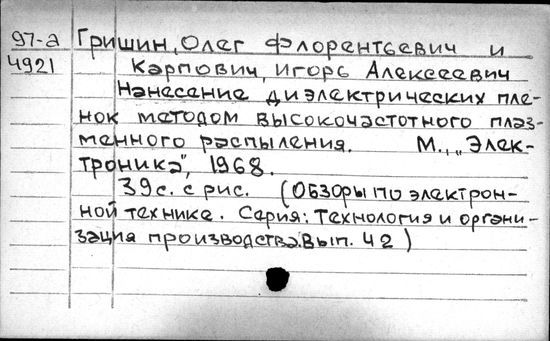 97-а Гришин, Олег Флорентьевич и
4921 Карпович, Игорь Алексеевич
Нанесение диэлектрических пле-
нок методом высокочастотного плаз-
менного распыления. М., „Элек-
троника", 1968.
39с. с рис. (Обзоры по электрон-
ной технике. Серия: Технология и органи-
зация производства. Вып. 42)